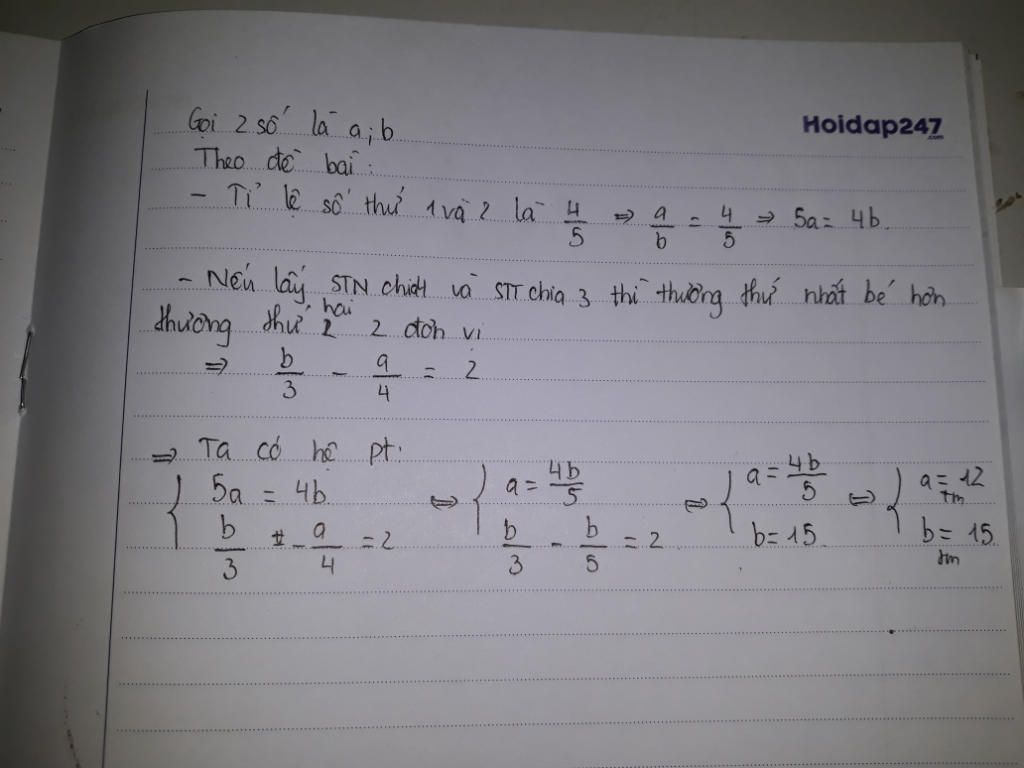 Gọi 2 số là a; b
Hoidap247
.com
Theo đề bài:
- Tỉ lệ số thứ 1 và 2 là 4/5 ⇒ a/b = 4/5 ⇒ 5a = 4b.
- Nếu lấy STN chia 4 và STT chia 3 thì thương thứ nhất bé hơn
thương thứ hai 2 đơn vị
⇒ b/3 - a/4 = 2
⇒ Ta có hệ pt:
{ 5a = 4b ⇔ { a = 4b/5 ⇔ { a = 4b/5 ⇔ { a = 12 tm
b/3 - a/4 = 2 b/3 - b/5 = 2 b = 15 b = 15 tm